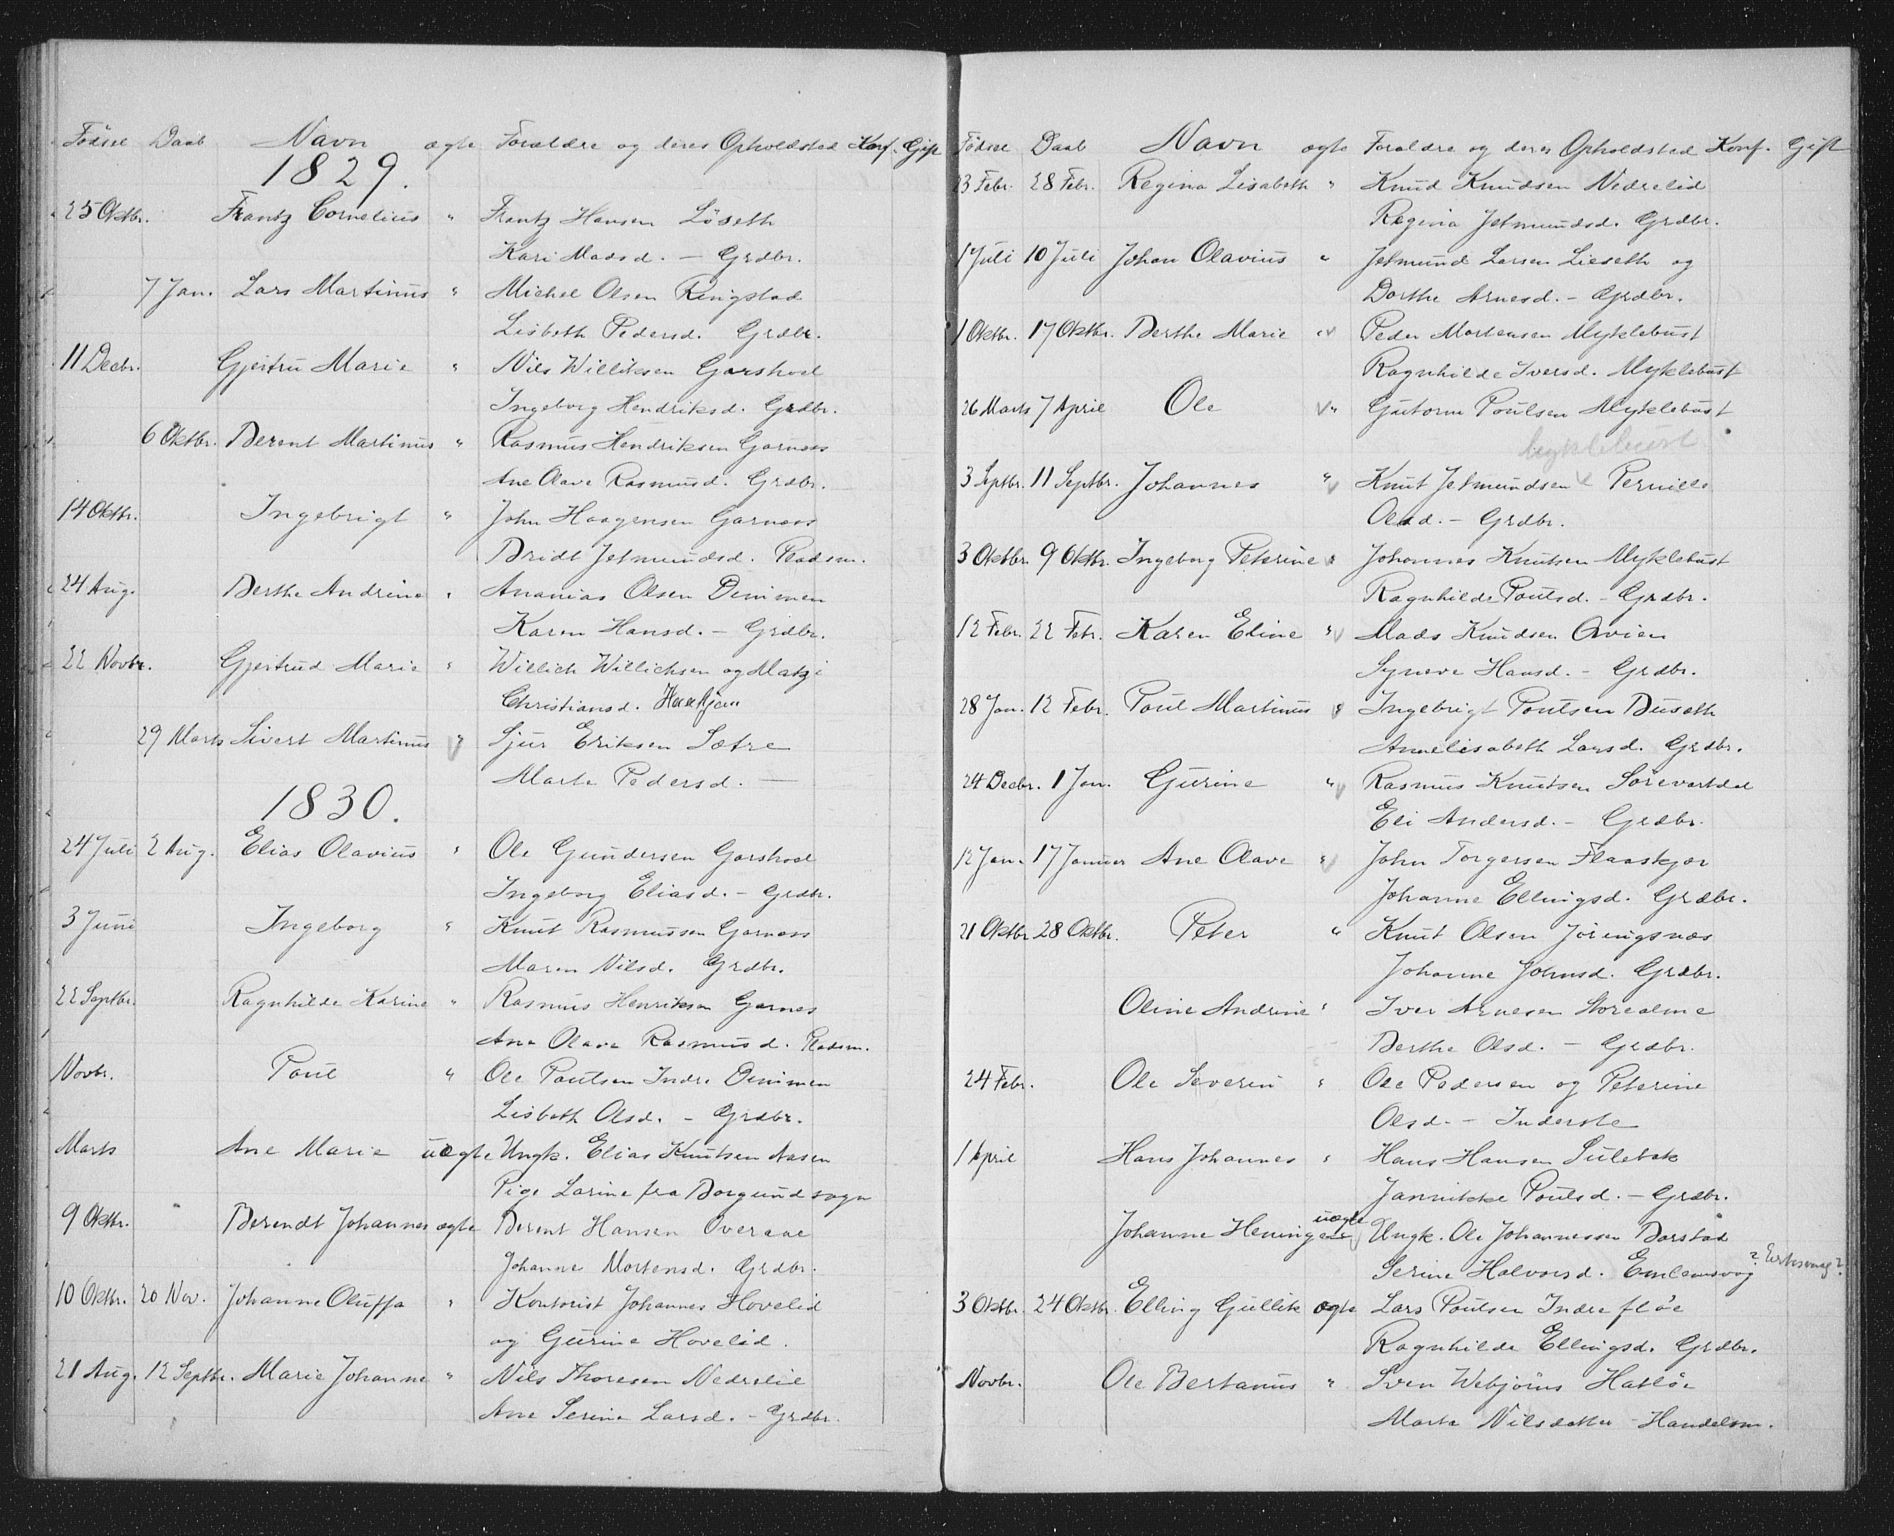 Fødsel Daab Navn ægte Forældre og deres Opholdsted Konf. Gift
1829.
25 Oktbr. Frantz Cornelius " Frantz Hansen Løseth
Kari Madsd. — Grdbr.
7 Jan. Lars Martinus " Michel Olsen Ringstad
Lisbeth Pedersd. Grdbr.
11 Decbr. Gjertru Marie " Nils Williksen Garshol
Ingeborg Hendriksd. Grdbr.
6 Oktbr. Berent Martinus " Rasmus Hendriksen Garnæs
Ane Olave Rasmusd. Grdbr.
14 Oktbr. Ingebrigt " John Haagensen Garnæs
Bridt Jetmundsd. Pladsm.
24 Aug. Berthe Andrine " Ananias Olsen Dimmen
Karen Hansd. — Grdbr.
22 Novbr. Gjertrud Marie " Willich Willichsen og Matzi
Christiansd. Haakjæn
29 Marts Sivert Martinus " Sjur Eriksen Sætre
Marte Pedersd. —
1830.
24 Juli 2 Aug. Elias Olavius " Ole Gundersen Garshol
Ingeborg Eliasd. — Grdbr.
3 Juni Ingeborg " Knut Rasmussen Garnæs
Maren Nilsd. Grdbr.
22 Septbr. Ragnhilde Karine " Rasmus Henriksen Garnes
Ane Olave Rasmusd. Pladsm.
Novbr. Poul " Ole Poulsen Indre Dimmen
Lisbeth Olsd. — Grdbr.
Marts Ane Marie uægte Ungk. Elias Knutsen Aasen
Pige Larine fra Borgund sogn
9 Oktbr. " Berendt Johannes ægte Berent Hansen Overaae
Johanne Mortensd. Grdbr.
10 Oktbr. 20 Nov. Johanne Oluffa " Kontorist Johannes Hovelid
og Gurine Hovelid.
21 Aug. 12 Septbr. Marie Johanne " Nils Thoresen Nedrelid
Ane Serine Larsd. — Grdbr.
Fødsel Daab Navn ægte Forældre og deres Opholdsted Konf. Gift
23 Febr. 28 Febr. Regina Lisabeth " Knud Knudsen Nedrelid
Regina Jetmundsd. Grdbr.
1 Juli 10 Juli Johan Olavius " Jetmund Larsen Lieseth og
Dorthe Arnesd. — Grdbr.
1 Oktbr. 17 Oktbr. Berthe Marie " v Peder Mortensen Myklebust
Ragnhilde Iversd. Myklebust
26 Marts 7 April Ole v " Gutorm Poulsen Myklebust
Myklebust
3 Septbr. 11 Septbr. Johannes " v Knut Jetmundsen v Pernille
Olsd. — Grdbr.
3 Oktbr. 9 Oktbr. Ingeborg Peterine " Johannes Knutsen Myklebust
Ragnhilde Poulsd. — Grdbr.
12 Febr. 22 Febr. Karen Eline " v Mads Knudsen Qvien
Syneve Hansd. — Grdbr.
28 Jan. 12 Febr. Poul Martinus " Ingebrigt Poulsen Buseth
Annelisabeth Larsd. Grdbr.
24 Decbr. 1 Jan. Gurine " v Rasmus Knutsen Sørevartdal
Eli Andersd. — Grdbr.
12 Jan. 17 Januar Ane Olave " v John Torgersen Flaaskjær
Johanne Ellingsd. Grdbr.
21 Oktbr 28 Oktbr. Peter " Knut Olsen Jøringsnæs
Johanne Johnsd. Grdbr.
Oline Andrine " Iver Arnesen Storealme
Berthe Olsd. — Grdbr.
24 Febr. Ole Severin " Ole Pedersen og Peterine
Olsd. — Inderste
1 April Hans Johannes " Hans Hansen Sulebak
Jannikke Poulsd. — Grdbr.
Johanne Heningine uægte v Ungk. Ole Johannessen Barstad
Serine Halvorsd. Emlemsvog
3 Oktbr. 24 Oktbr. Elling Gullik ægte Lars Poulsen Indre fløe
Ragnhilde Ellingsd. Grdbr.
Novbr. Ole Bertanus " Sven Webjørns Hatløe
Marte Nilsdatter Handelsm.